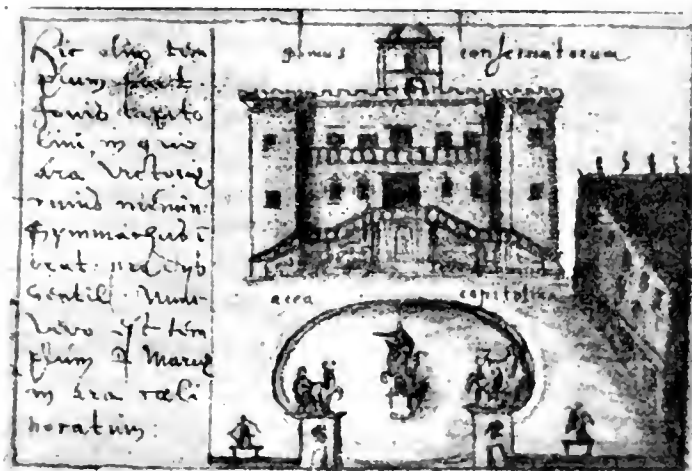 Hic olim tem
plum fuit
Jovis capito
lini, in quo
ara Victoriæ
cuius memin:
Symmachus i
orat.
Gentil. Nunc
vero est tem
plum S Mariæ
in ara cæli
noratum:
Domus conservatorum
area capitolina